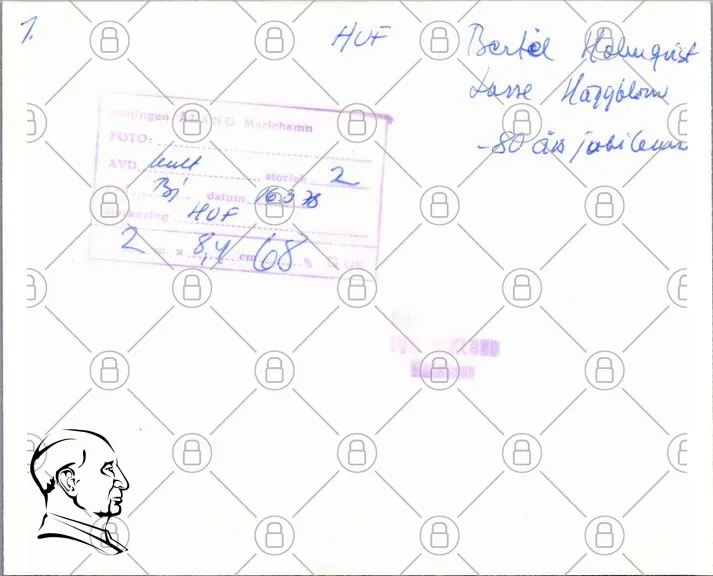 1.
HUF
Bertel Holmquist
Lasse Häggblom
- 80 års jubileum
tidningen ÅLAND Mariehamn
FOTO:
AVD kult storlek 2
Bj datum 16 3 78
Markering HUF
2 x 8,4 cm 68 %